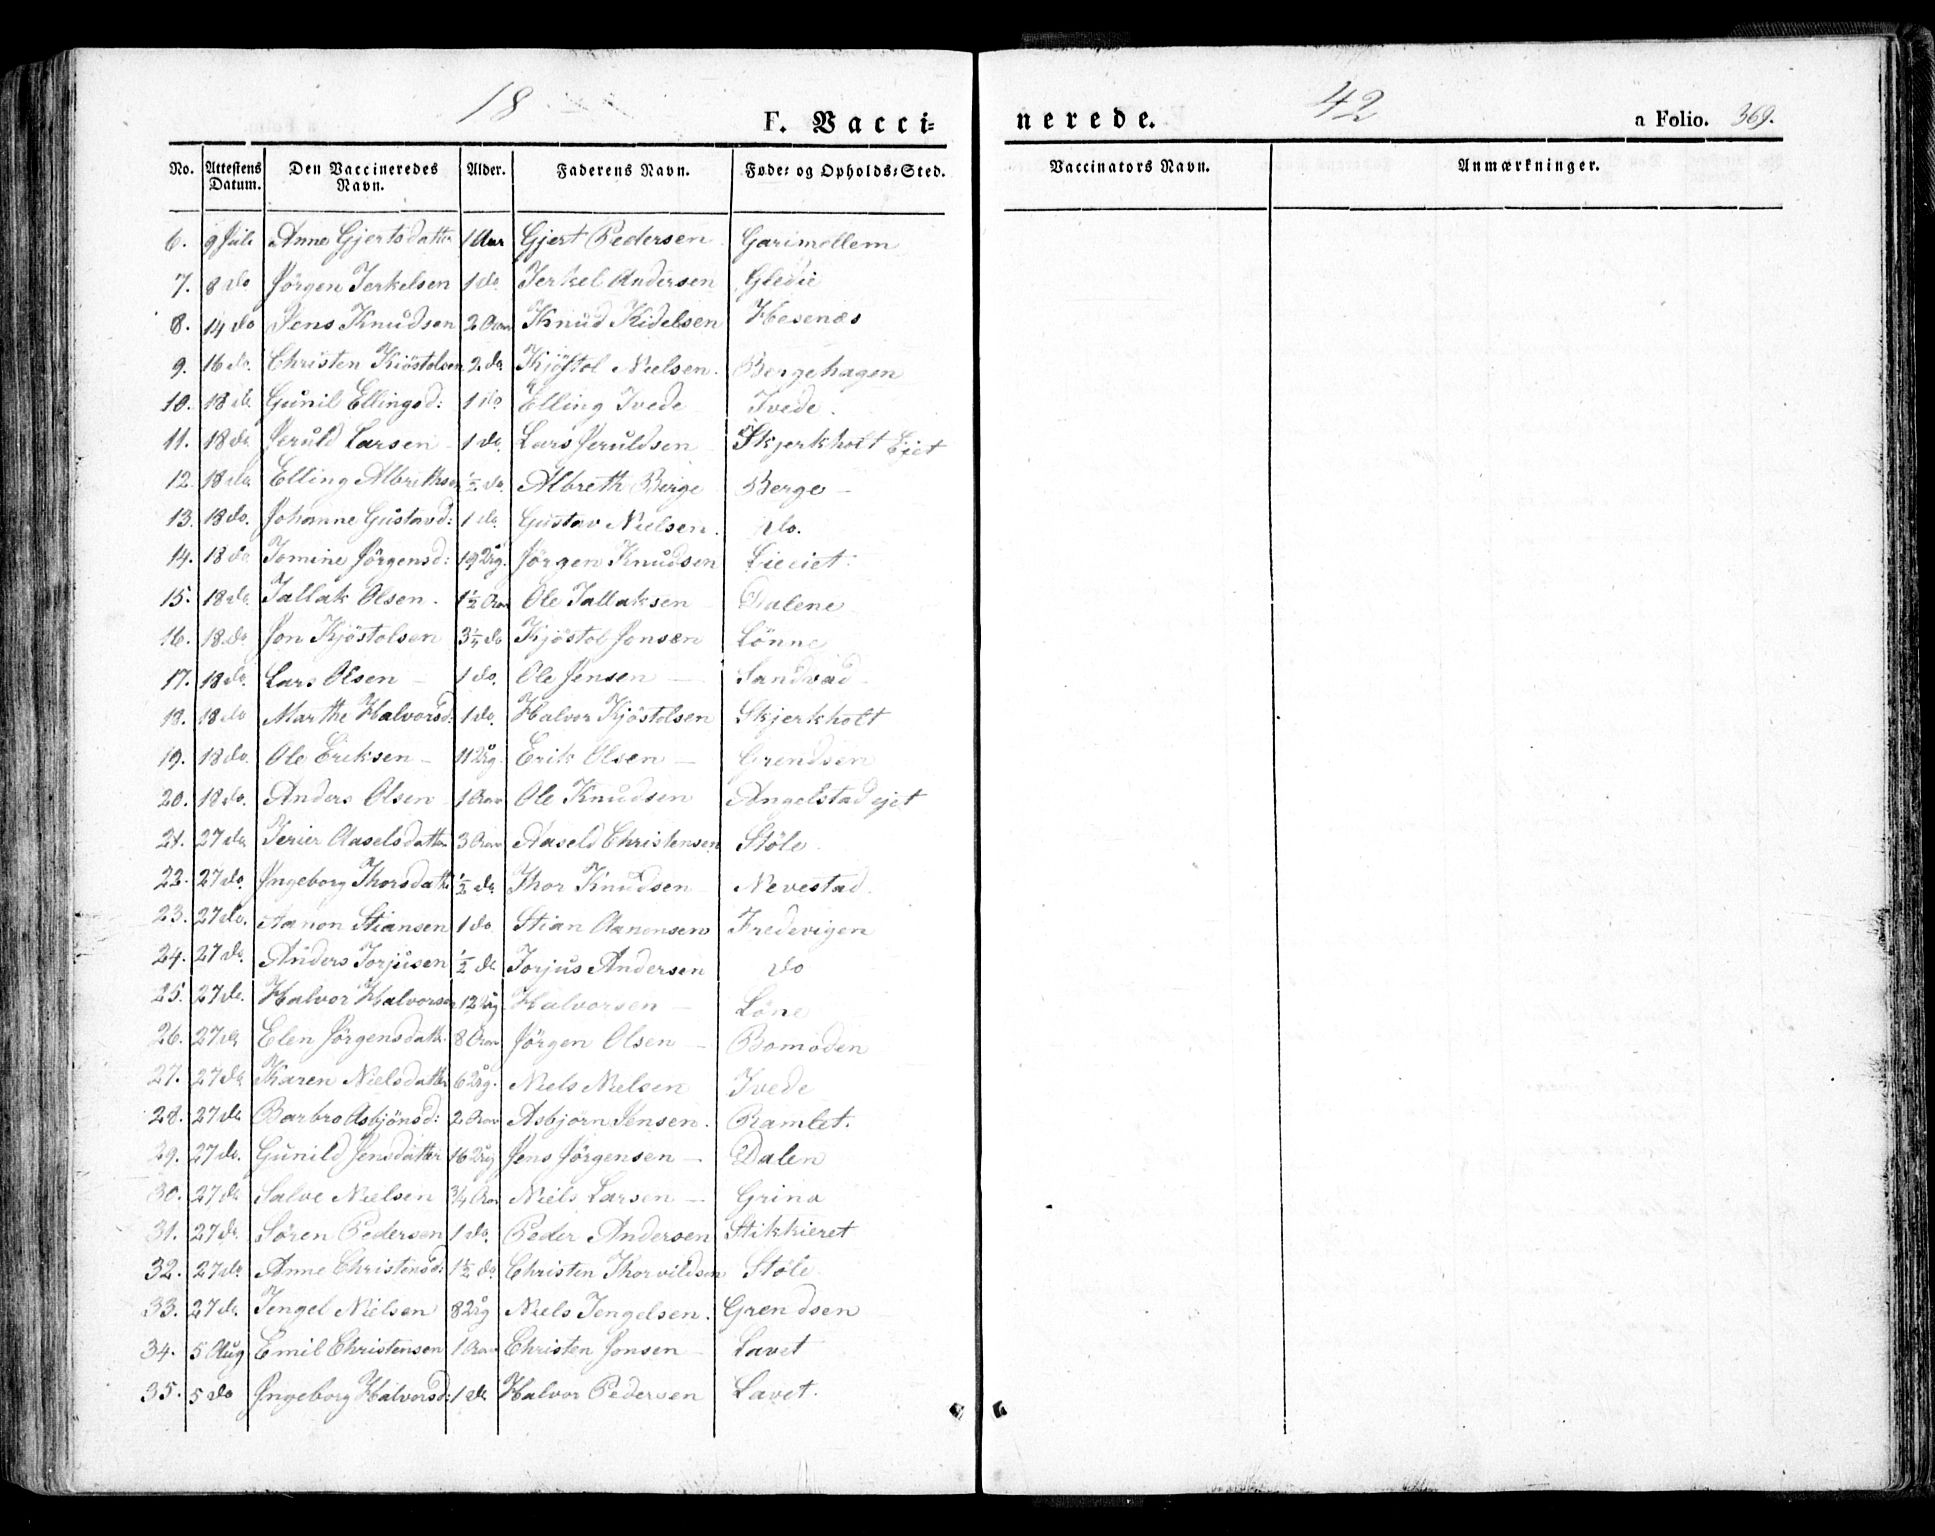 18 42
F. Vaccinerede. a Folio. 369.
No. Attestens Datum. Den Vaccineredes Navn. Alder. Faderens Navn. Føde- og Opholds-Sted. Vaccinators Navn. Anmærkninger.
6. 9 Juli Anne Gjertsdatter 1 Aar Gjert Pedersen Garimellem
7. 8 do Jörgen Terkelsen 1 do. Terkel Andersen Gledie
8. 14 do Jens Knudsen 2 Aar Knud Kidelsen Hesenæs
9. 16 do. Christen Kiöstolsen 2 do Kjöstol Nielsen. Bergehagen
10. 18 do. Gunil Ellingsd: 1 do Elling Tvede Tvede.
11. 18 do. Jeruld Larsen 1 do. Lars Jeruldsen Skjerkholt Ejet
12. 18 do. Elling Albrethsen ½ do. Albreth Berge Berge
13. 18 do. Johanne Gustavd: 1 do. Gustav Nielsen. do.
14. 18 do Tomine Jörgensd: 19 Ug. Jörgen Knudsen
15. 18 do. Tallak Olsen. 1½ Aar Ole Tallaksen Dalene
16. 18. do Jon Kjöstolsen 3¼ do Kjöstol Jonsen Lönne
17. 18 do. Lars Olsen 1 do. Ole Jensen Sandvad
18. 18 do Marthe Halvorsd: 1 do. Halvor Kjöstolsen Skjerkholt
19. 18 do. Ole Eriksen 11 Ug. Erik Olsen Grendsen
20. 18 do. Anders Olsen 1 Aar Ole Knudsen Angelstad ejet
21. 27 do. Terier Aaselsdatter 3 Aar Aaseld Christensen Stöle.
22. 27 do. Ingeborg Thorsdatt ½ do. Thor Knudsen Nevestad.
23. 27 do. Aanon Stiansen 1 do. Stian Aanonsen Fredevigen
24. 27 do. Anders Torjusen ½ do Torjus Andersen do
25. 27 do. Halvor Halvorsen 12 Ug Halvorsen Löne
26. 27 do Elen Jörgensdatt. 8 Aar Jörgen Olsen Bomoden
27. 27 do Karen Nielsdatter 6 Ug. Niels Nielsen Tvede
28. 27 do Barbro Asbjönsd: 2 Aar Asbjorn Jensen. Ramlet.
29. 27 do. Gunild Jensdatter 16 Ug Jens Jörgensen Dalen
30. 27 do Salve Nielsen ¾ Aar Niels Larsen Grina
31. 27 do. Sören Pedersen 1 do. Peder Andersen Stikkieret
32. 27 do. Anne Christensd: 1½ do. Christen Thorvildsen Stöle
33. 27 do. Tengel Nielsen 8 Ug Niels Tengelsen. Grendsen
34. 5 Aug Emil Christensen 1 Aar Christen Jonsen Lavet
35. 5 do Ingeborg Halvorsd: 1 do Halvor Pedersen Lavet.